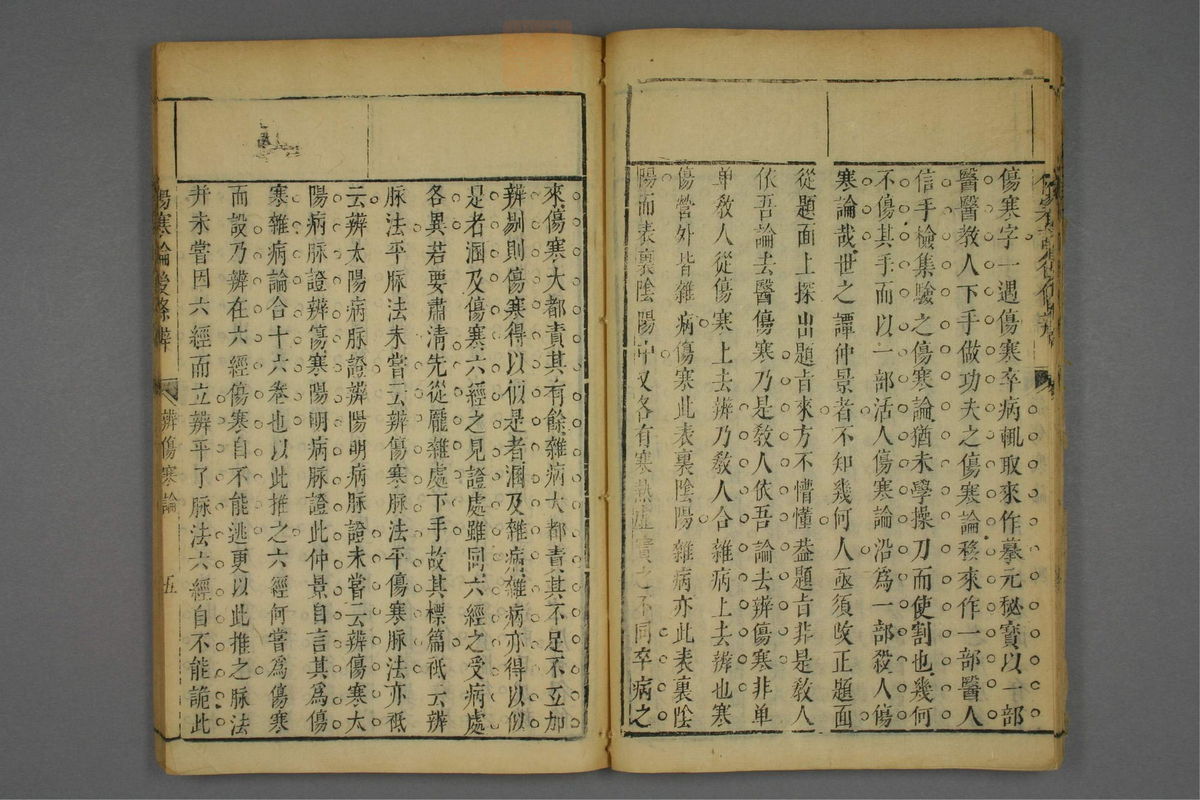 傷寒字一遇傷寒卒病輒取來作摹元秘寶以一部
醫醫教人下手做功夫之傷寒論移來作一部醫人
信手檢集驗之傷寒論猶未學操刀而使割也幾何
不傷其手而以一部活人傷寒論沿爲一部殺人傷
寒論哉世之譚仲景者不知幾何人亟須改正題面
從題面上探出題旨來方不懵懂葢題旨非是教人
依吾論去醫傷寒乃是教人依吾論去辨傷寒非单
单教人從傷寒上去辨乃教人合雜病上去辨也寒
傷營外皆雜病傷寒此表裏陰陽雜病亦此表裏陰
陽而表裏陰陽中又各有寒熱虛實之不同卒病之
來傷寒大都責其有餘雜病大都責其不足不立加
辨剔則傷寒得以似是者溷及雜病雜病亦得以似
是者溷及傷寒六經之見證處雖同六經之受病處
各異若要肅清先從龐雜處下手故其標篇秪云辨
脉法平脉法未嘗云辨傷寒脉法平傷寒脉法亦秪
云辨太陽病脉證辨陽明病脉證未嘗云辨傷寒太
陽病脉證辨傷寒陽明病脉證此仲景自言其爲傷
寒雜病論合十六卷也以此推之六經何嘗爲傷寒
而設乃辨在六經傷寒自不能逃更以此推之脉法
并未嘗因六經而立辨平了脉法六經自不能詭此
傷寒論後條辨 辨傷寒論 五